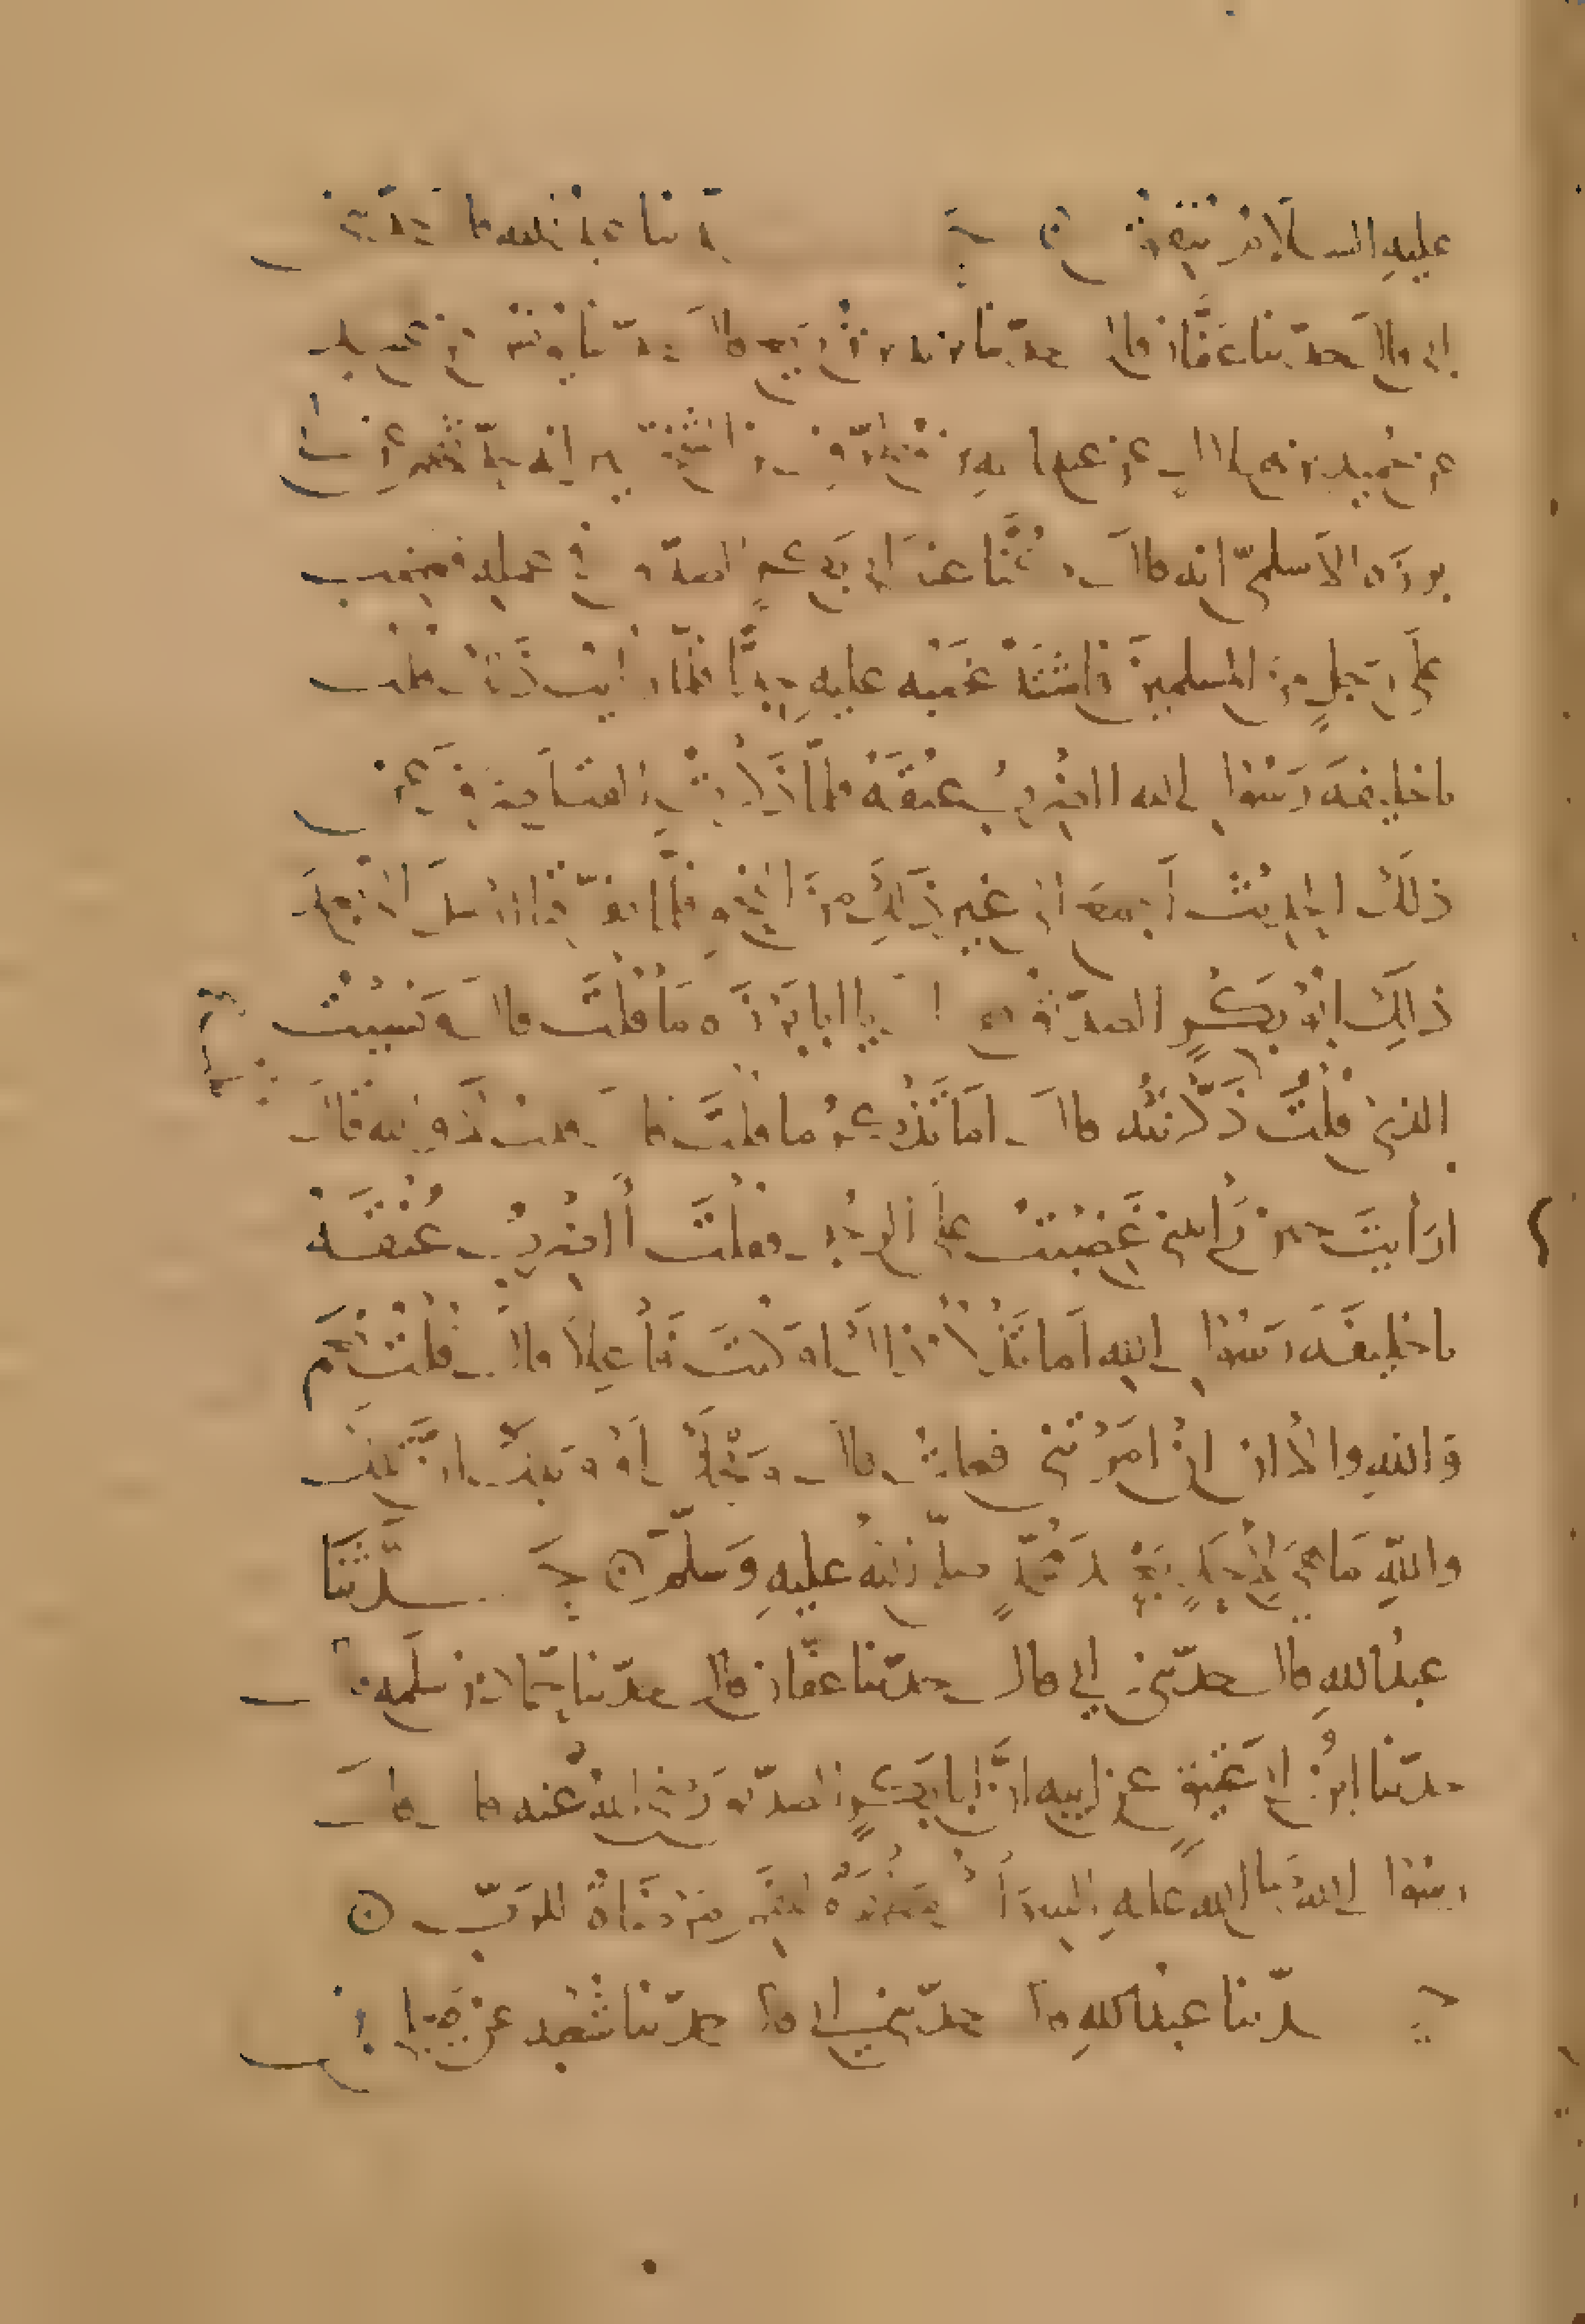 عليه السلام ينتقدون حدثنا عبد الله قال حدثني
ابي قال حدثنا عفان قال حدثنا يزيد بن زريع قال حدثنا يونس بن عبيد
عن حميد بن هلال عن عبد الله بن مطرف بن الشخير انه حدثهم عن ابي
برزة الاسلمي انه قال كنا عند ابي بكر الصديق في عمله فغضب
على رجل من المسلمين فاشتد غضبه عليه جدا فلما رايت ذلك قلت
يا خليفة رسول الله اضرب عنقه فلما ذكرت القتل اضرب عن
ذلك الحديث اجمع الى غير ذلك من النحو فلما تفرقنا ارسل الي بعد
ذلك ابو بكر الصديق فقال يا ابا برزة ما قلت قال ونسيت
الذي قلت ذكرنيه قال اما تذكر ما قلت قال قلت لا والله قال
ارايت حين رايتني غضبت على الرجل فقلت اضرب عنقه
يا خليفة رسول الله اما تذكر ذاك او كنت فاعلا قال قلت نعم
والله والان ان امرتني فعلت قال ويحك او ويلك ان تلك
والله ما هي لاحد بعد محمد صلى الله عليه وسلم حدثنا
عبد الله قال حدثني ابي قال حدثنا عفان قال حدثنا حماد بن سلمة
حدثنا ابن ابي عتيق عن ابيه ان ابا بكر الصديق رضي الله عنه قال قال
رسول الله صلى الله عليه السواك مطهرة للفم مرضاة للرب
حدثنا عبد الله قال حدثني ابي قال حدثنا